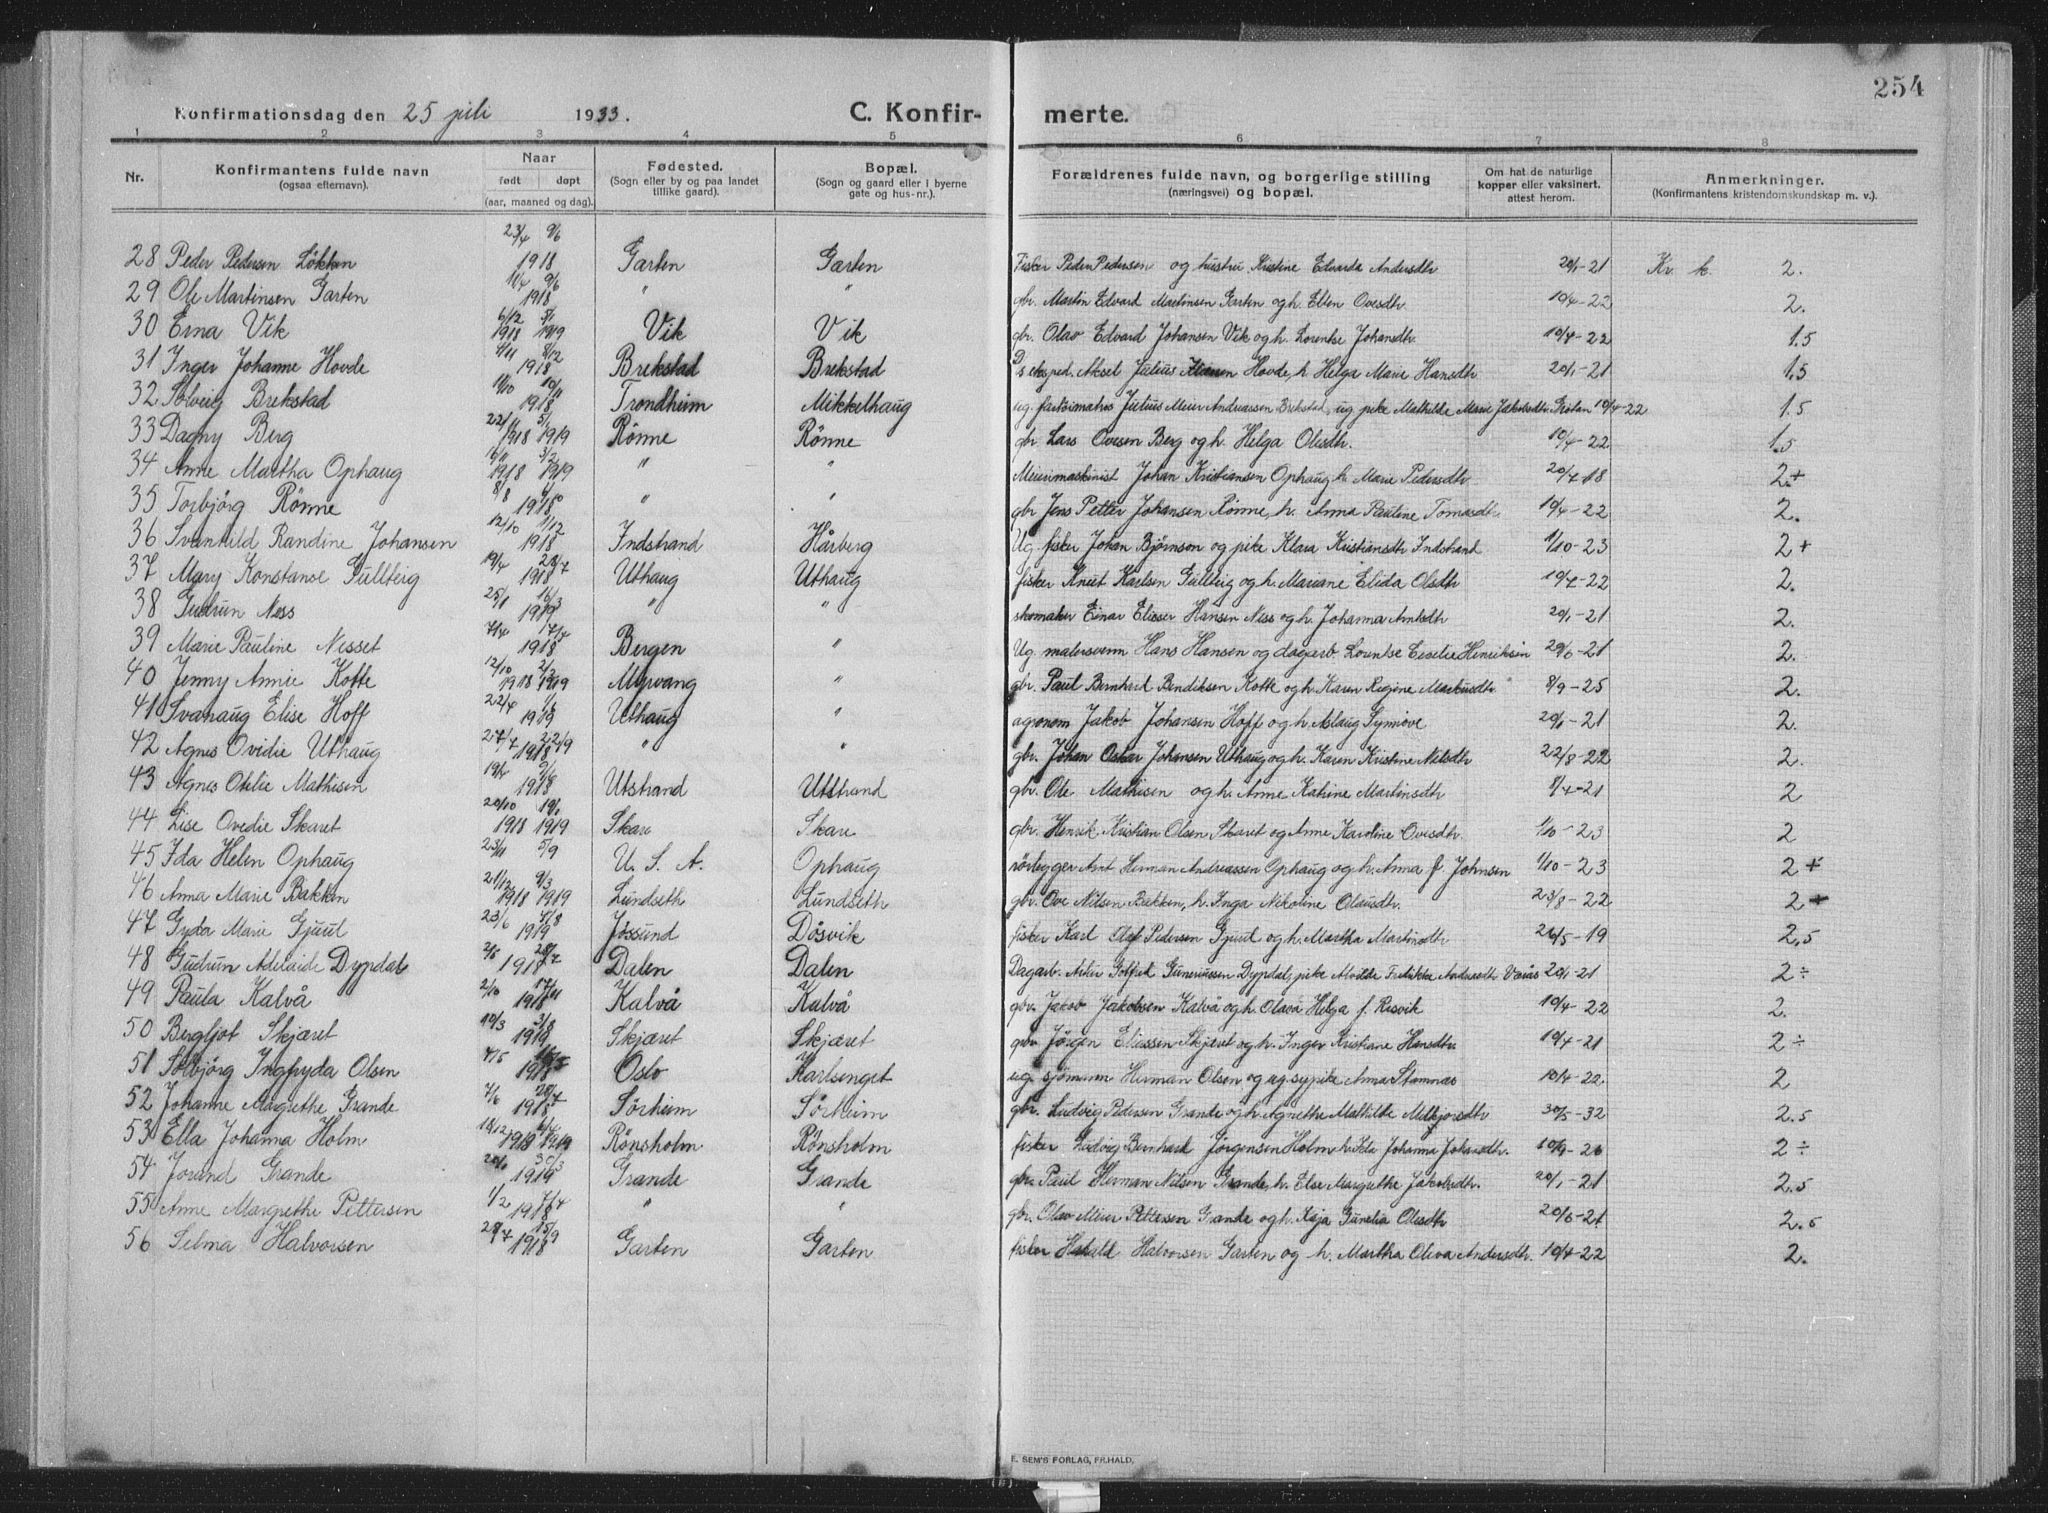 254
Konfirmationsdag den 25 juli 1933. C. Konfirmerte.
1 2 3 4 5 6 7 8
Nr. Konfirmantens fulde navn (ogsaa efternavn). Naar født døpt (aar, maaned og dag). Fødested. (Sogn eller by og paa landet tillike gaard). Bopæl. (Sogn og gaard eller i byerne gate og hus-nr.). Forældrenes fulde navn, og borgerlige stilling (næringsvei) og bopæl. Om hat de naturlige kopper eller vaksinert, attest herom. Anmerkninger. (Konfirmantens kristendomskundskap m. v.).
28 Peder Pedersen Løkken 23/4 9/6 1918 Garten Garten Fisker Peder Pedersen og hustru Kristine Edvarda Andersdtr 20/1-21 Kr. k. 2.
29 Ole Martinsen Garten 11/4 9/6 1918 " " gbr. Martin Edvard Martinsen Garten og h. Elen Ovesdtr 10/4-22 2.
30 Erna Vik 6/12 1918 5/1 1919 Vik Vik gbr. Olav Edvard Johansen Vik og h. Lorentse Johansdtr. 10/4-22 1.5
31 Inger Johanne Hovde 4/11 8/12 1918 Brekstad Brekstad Aksel Julius Hovde, h. Helga Marie Hansdtr 20/1-21 1.5
32 Solveig Brekstad 11/10 10/11 1918 Trondheim Mikkelhaug ug. Julius Meier Andreassen Brekstad, ug pike Mathilde Marie Jakobsdtr. Grøtan 10/4-22 1.5
33 Dagny Berg 22/11 1918 5/1 1919 Rønne Rønne gbr Lars Ovesen Berg og h. Helga Olesdtr. 10/4-22 1.5
34 Anne Martha Ophaug 16/11 1918 3/2 1919 " " Meierimaskinist Johan Kristiansen Ophaug h. Marie Pedersdtr 20/4 18 2+
35 Torbjørg Rønne 8/8 6/10 1918 " " gbr Jens Petter Johansen Rønne, h. Anna Pauline Tomasdtr. 10/4-22 2.
36 Svanhild Randine Johansen 12/10 1/12 1918 Indstrand Hårberg Ug. fisker Johan Bjørnson og pike Klara Kristiansdtr Indstrand 1/10-23 2+
37 Mary Konstanse Gullteig 19/4 28/7 1918 Uthaug Uthaug fisker Knut Karlsen Gullteig og h. Mariane Elida Olsdtr 10/4-22 2.
38 Gudrun Ness 25/1 16/3 1919 " " skomaker Einar Elieser Hansen Ness og h. Johanna Arntsdtr 20/1-21 2.
39 Marie Pauline Nesset 7/4 17/7 1918 Bergen " Ug. malersvenn Hans Hansen og dagarb. Lorentse Eeselie Henriksen 20/6-21 2.
40 Jenny Annie Kotte 12/10 1918 2/2 1919 Myrvang " gbr. Paul Bernhard Bendiksen Kotte og h. Karen Regine Markusdtr 8/9-25 2.
41 Svanaug Elise Hoff 22/4 1/6 1919 Uthaug " agronom Jakob Johansen Hoff og h. Aslaug Synnøve 20/1-21 2.
42 Agnes Ovidie Uthaug 27/7 22/9 1918 " " gbr. Johan Oskar Johansen Uthaug og h. Karen Kristine Nilsdtr 22/8-22 2.
43 Agnes Otelie Mathisen 19/4 9/6 1918 Utstrand Utstrand gbr. Ole Mathisen og h. Anne Katrine Martinsdtr 8/4-21 2
44 Lise Ovedie Skaret 20/10 1918 19/1 1919 Skare Skare gbr. Henrik Kristian Olsen Skaret og Anne Karoline Ovesdtr. 1/10-23 2
45 Ida Helen Ophaug 23/11 5/9 U. S. A. Ophaug rørlegger Arnt Herman Andreassen Ophaug og h. Anna f. Johnsen 1/10-23 2+
46 Anna Marie Bakken 21/12 1918 9/3 1919 Lundseth Lundseth gbr. Ove Nilsen Bakken, h. Inga Nikoline Olausdtr. 23/8-22 2+
47 Gyda Marie Gjuul 23/6 7/8 1919 Jøssund Døsvik fisker Karl Olaf Pedersen Gjuul og h. Martha Martinsdtr 26/5-19 2,5
48 Gudrun Adelaide Dypdal 2/5 28/7 1918 Dalen Dalen Dagarb. Gunerius­sen Dypdal, pike Fredrikke Andersdtr 20/1-21 2÷
49 Paula Kalvå 2/10 17/11 1918 Kalvå Kalvå gbr. Jakob Jakobsen Kalvå og h. Olava Helga f. Risvik 10/4-22 2.
50 Bergljot Skjæret 10/3 3/8 1919 Skjæret Skjæret gbr. Jørgen Eliassen Skjæret og h. Inger Kristiane Hansdtr. 10/4-21 2÷
51 Solbjørg Ingfryda Olsen 4/5 1918 Oslo Karlsenget ug. sjømann Herman Olsen og ug. sypike Anna Stamnes 10/4-22. 2
52 Johanne Margrethe Grande 7/6 28/7 1918 Sørheim Sørheim gbr. Ludvig Pedersen Grande og h. Agnethe Mathilde Melkjorsdtr 30/5-32 2.5
53 Ella Johanna Holm 18/12 1918 6/4 1919 Rønsholm Rønsholm fisker Ludvig Bernhard Jørgensen Holm h. Ida Johanna Johansdtr. 10/9-20 2÷
54 Jorund Grande 20/1 30/3 1919 Grande Grande gbr. Paul Herman Nilsen Grande, h. Else Margrethe Jakobsdtr. 20/1-21 2.5
55 Anne Margrethe Pettersen 1/2 7/4 1918 " " gbr. Olav Meier Pettersen Grande og h. Kaja Gunelia Olesdtr 20/6-21 2.5
56 Selma Halvorsen 28/7 15/9 1918 Garten Garten fisker Harald Halvorsen Garten og h. Martha Oliva Andersdtr. 10/4-22 2.
E. SEM'S FORLAG, FR.HALD.